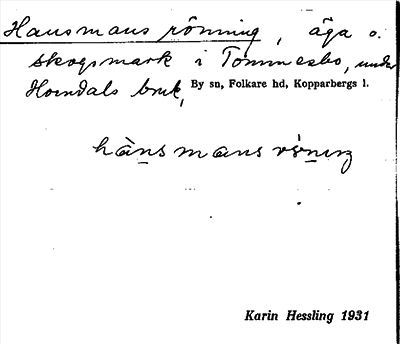 Hansmans rönning, äga o.
skogsmark i Tommesbo, under
Horndals bruk, By sn, Folkare hd, Kopparbergs l.
hànsmans rö̀nıŋ
Karin Hessling 1931